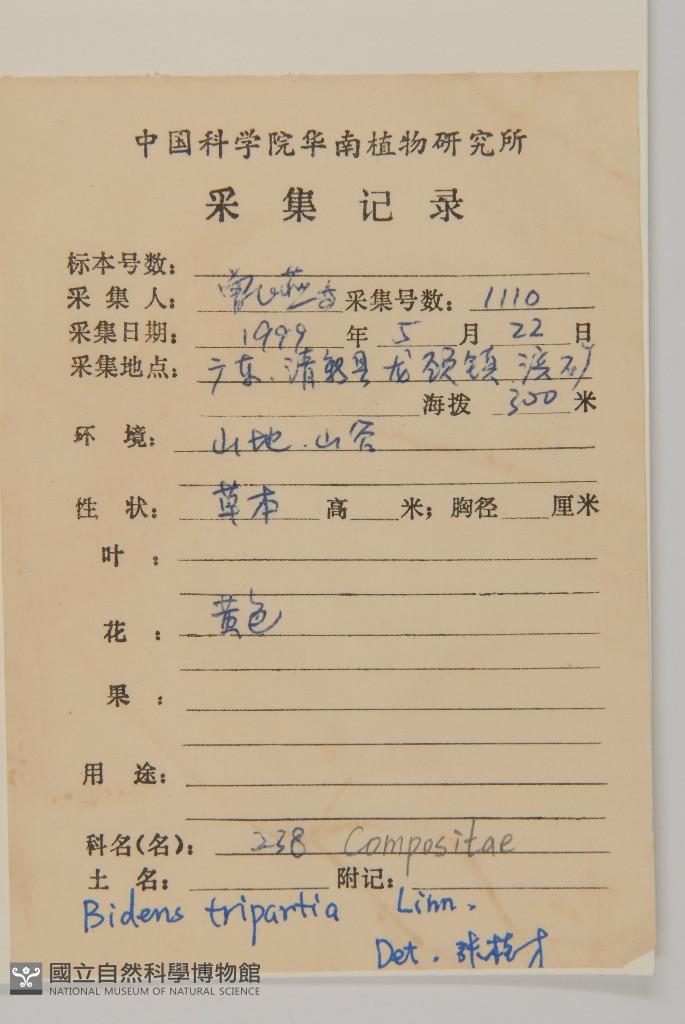 中国科学院华南植物研究所
采集记录
标本号数:
采集人: 曾 采集号数: 1110
采集日期: 1999 年 5 月 22 日
采集地点: 广东.清新县龙颈镇
海拨 300 米
环境: 山地.山谷
性状: 草本 高 米; 胸径 厘米
叶:
花: 黄色
果:
用途:
科名(名): 238 Compositae
土名: 附记:
Bidens tripartia Linn.
Det. 张桂才
國立自然科學博物館
NATIONAL MUSEUM OF NATURAL SCIENCE